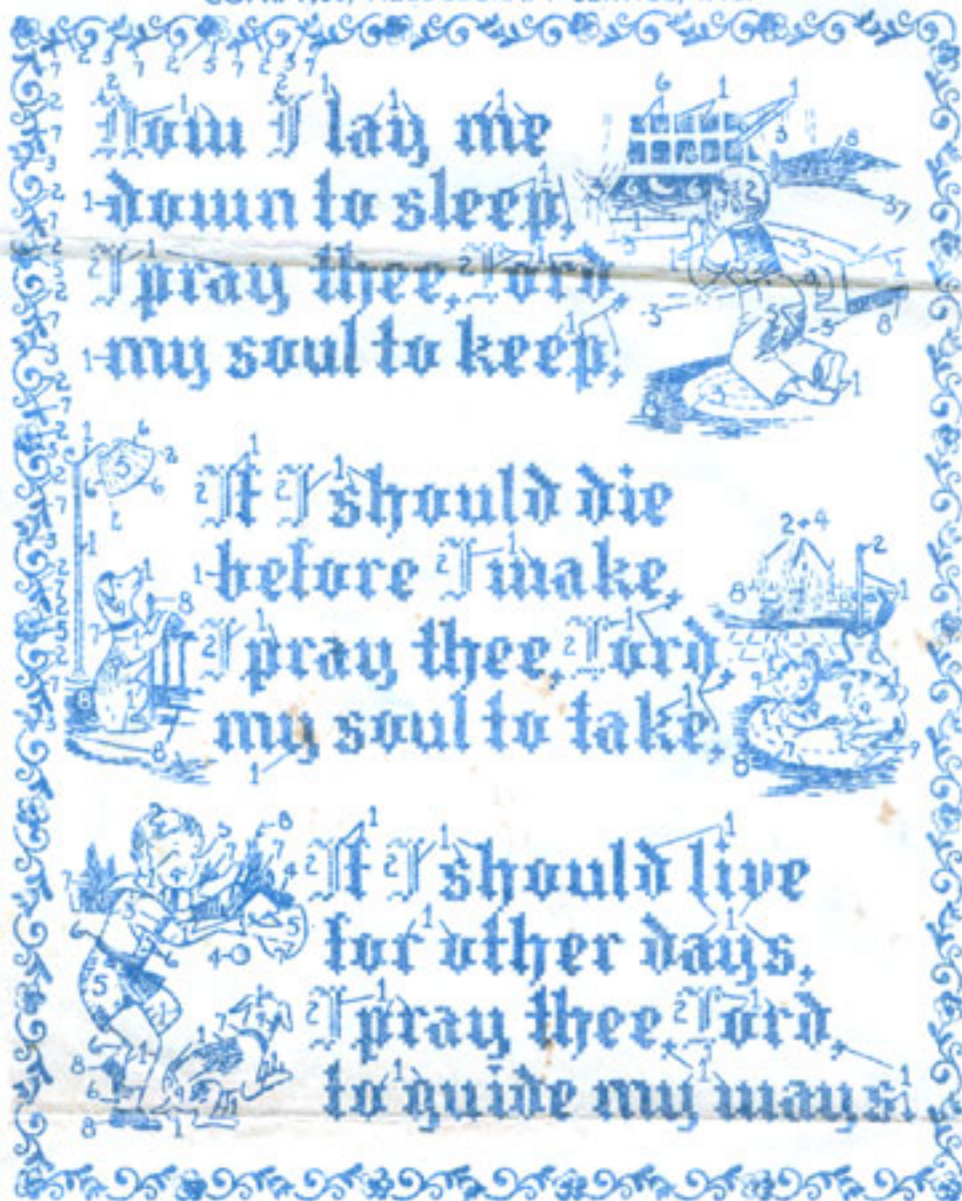 Now I lay me
down to sleep,
I pray thee, Lord
my soul to keep,
If I should die
before I wake,
I pray thee, Lord,
my soul to take,
If I should live
for other days,
I pray thee Lord,
to guide my ways.